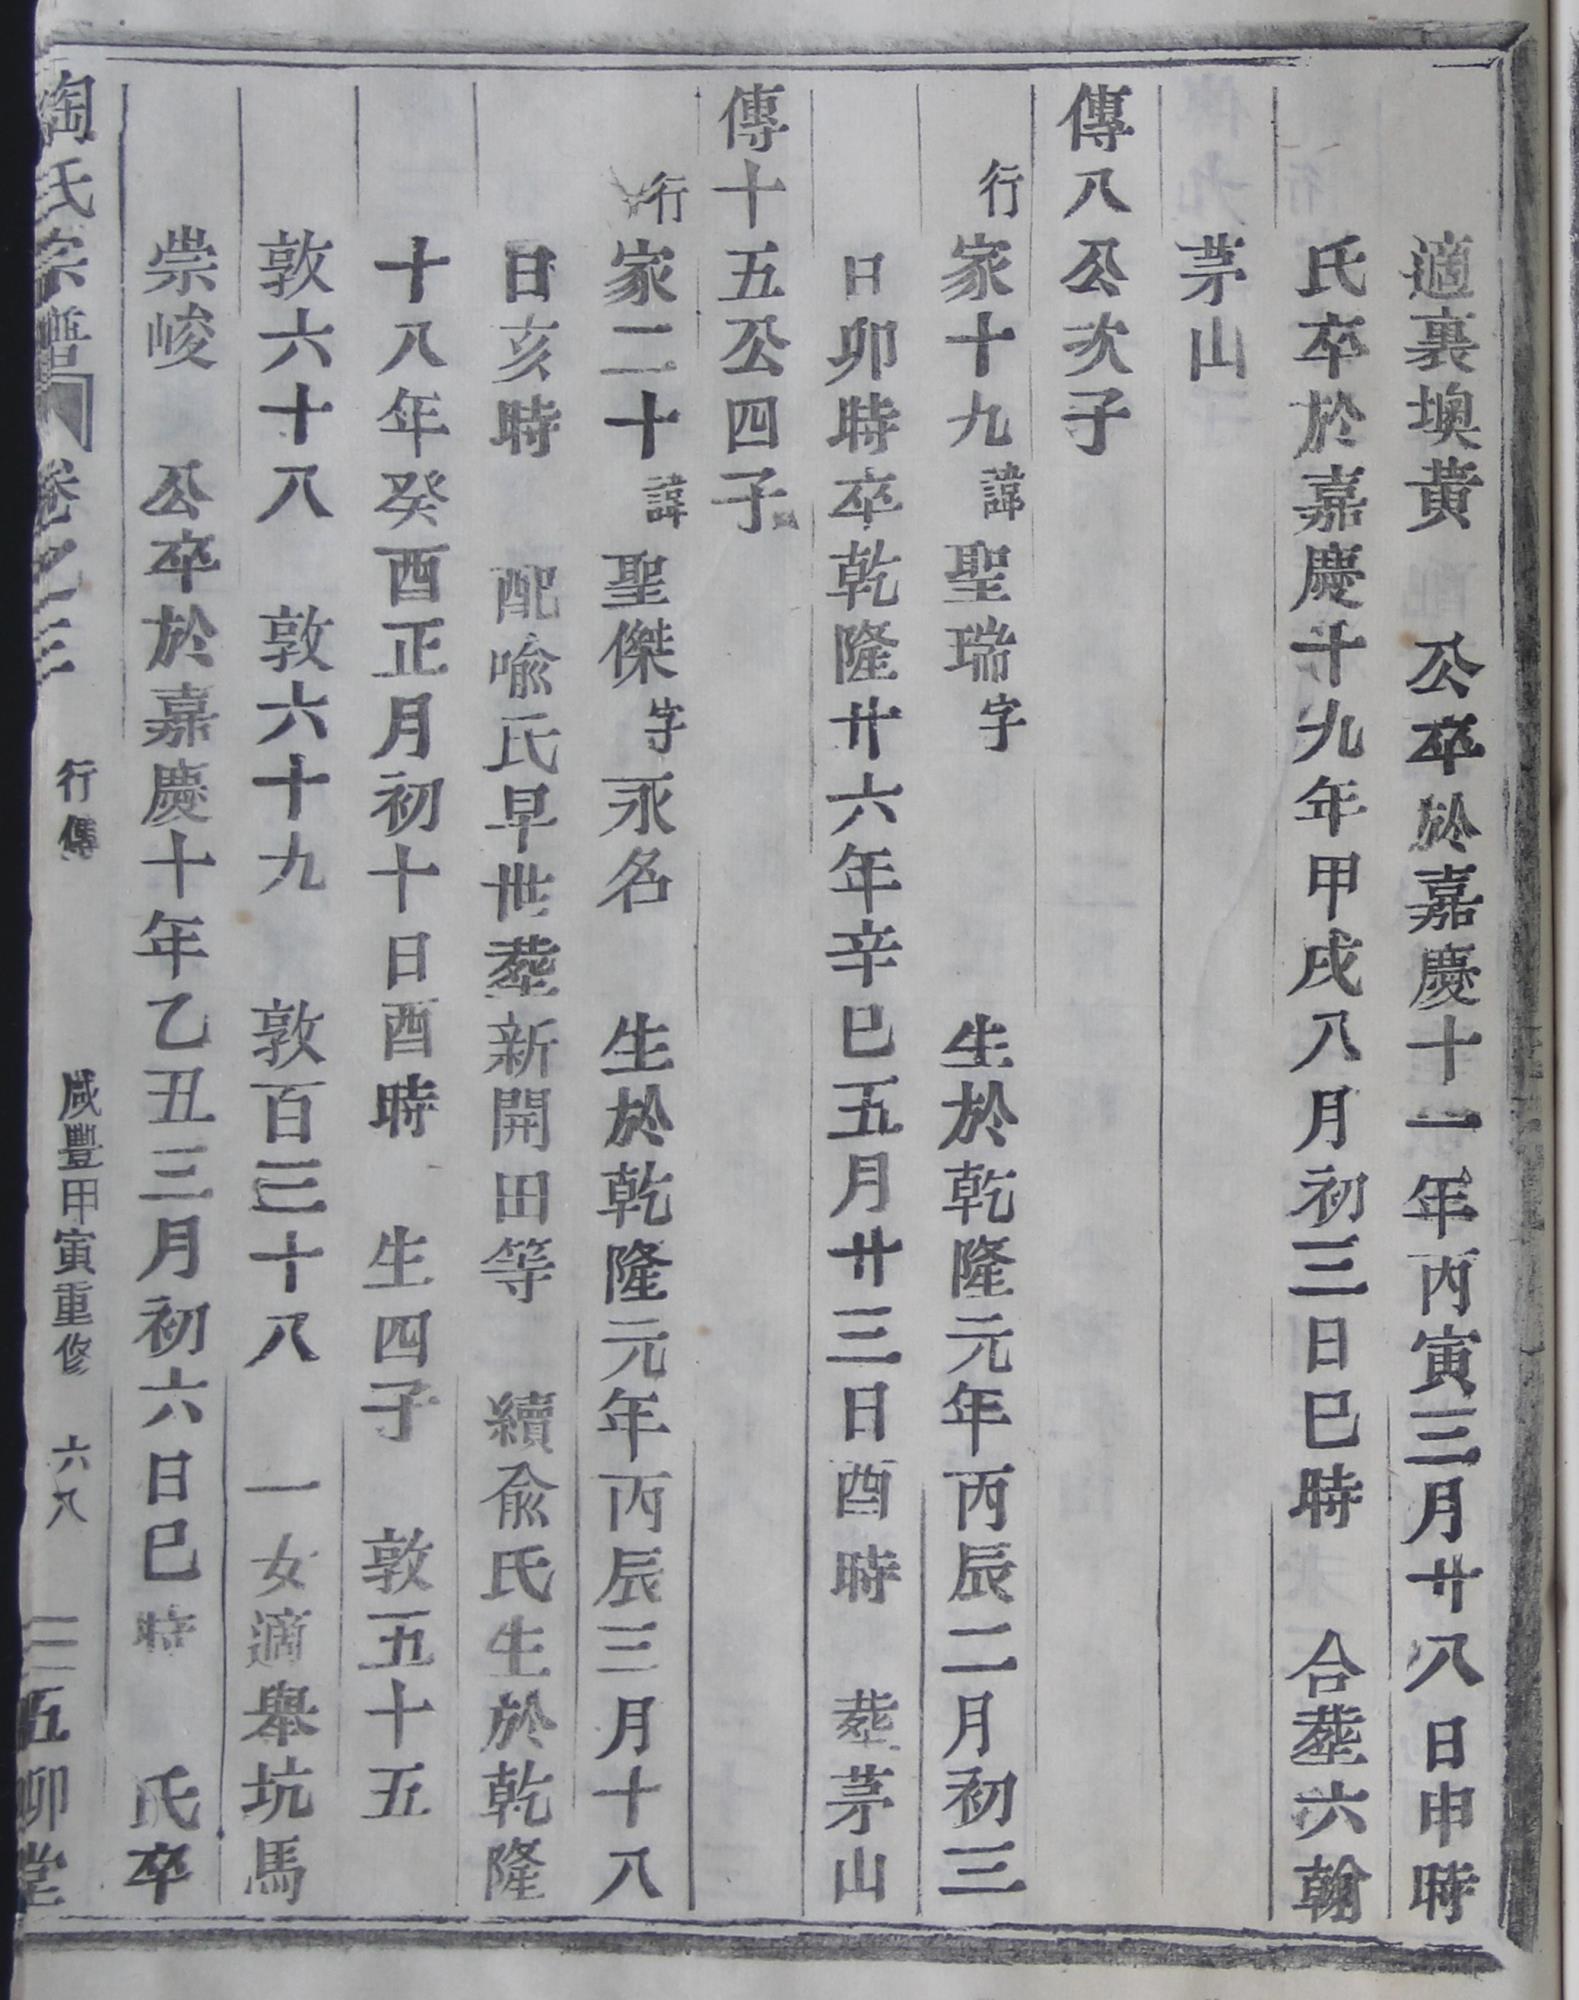 適裏墺黄　公卒於嘉慶十一年丙寅三月廿八日申時
氏卒於嘉慶十九年甲戌八月初三日巳時　合塟六翰
茅山
傳八公次子
行家十九諱聖瑞字　生於乾隆元年丙辰二月初三
日卯時卒乾隆廿六年辛巳五月廿三日酉時　塟茅山
傳十五公四子
行家二十諱聖傑字永名　生於乾隆元年丙辰三月十八
日亥時　配喻氏早世塟新開田等　續俞氏生於乾隆
十八年癸酉正月初十日酉時　生四子　敦五十五
敦六十八　敦六十九　敦百三十八　一女適舉坑馬
崇峻　公卒於嘉慶十年乙丑三月初六日巳時　氏卒
陶氏宗譜　卷之三　行傳　咸豐甲寅重修　六八　五柳堂